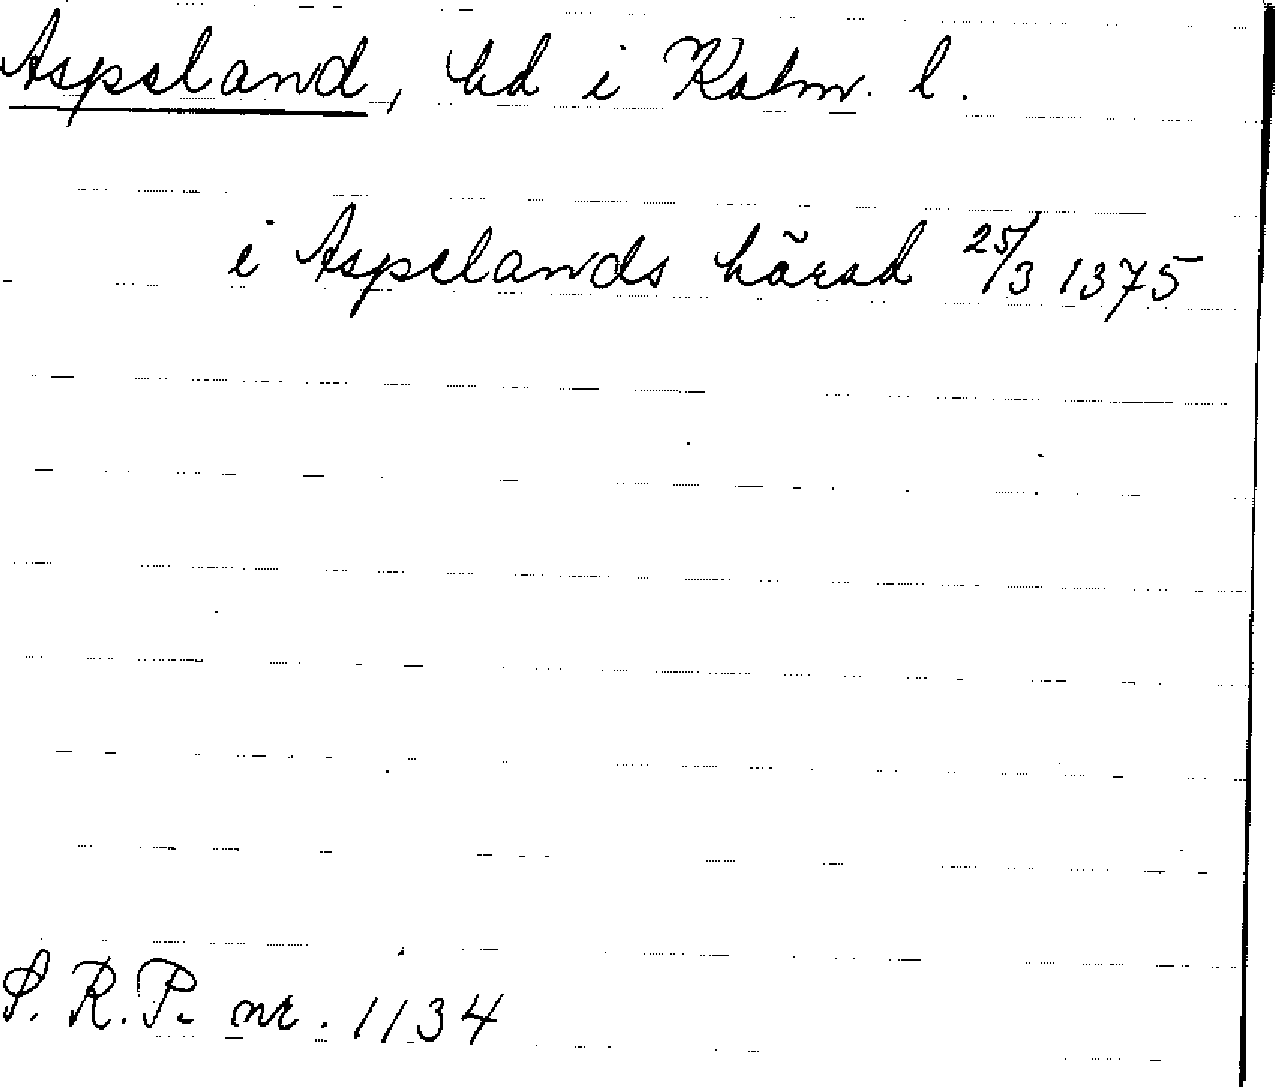 Aspeland, hd i Kalm. l.
i Aspelands härad 25/3 1375
S. R. P. nr. 1134